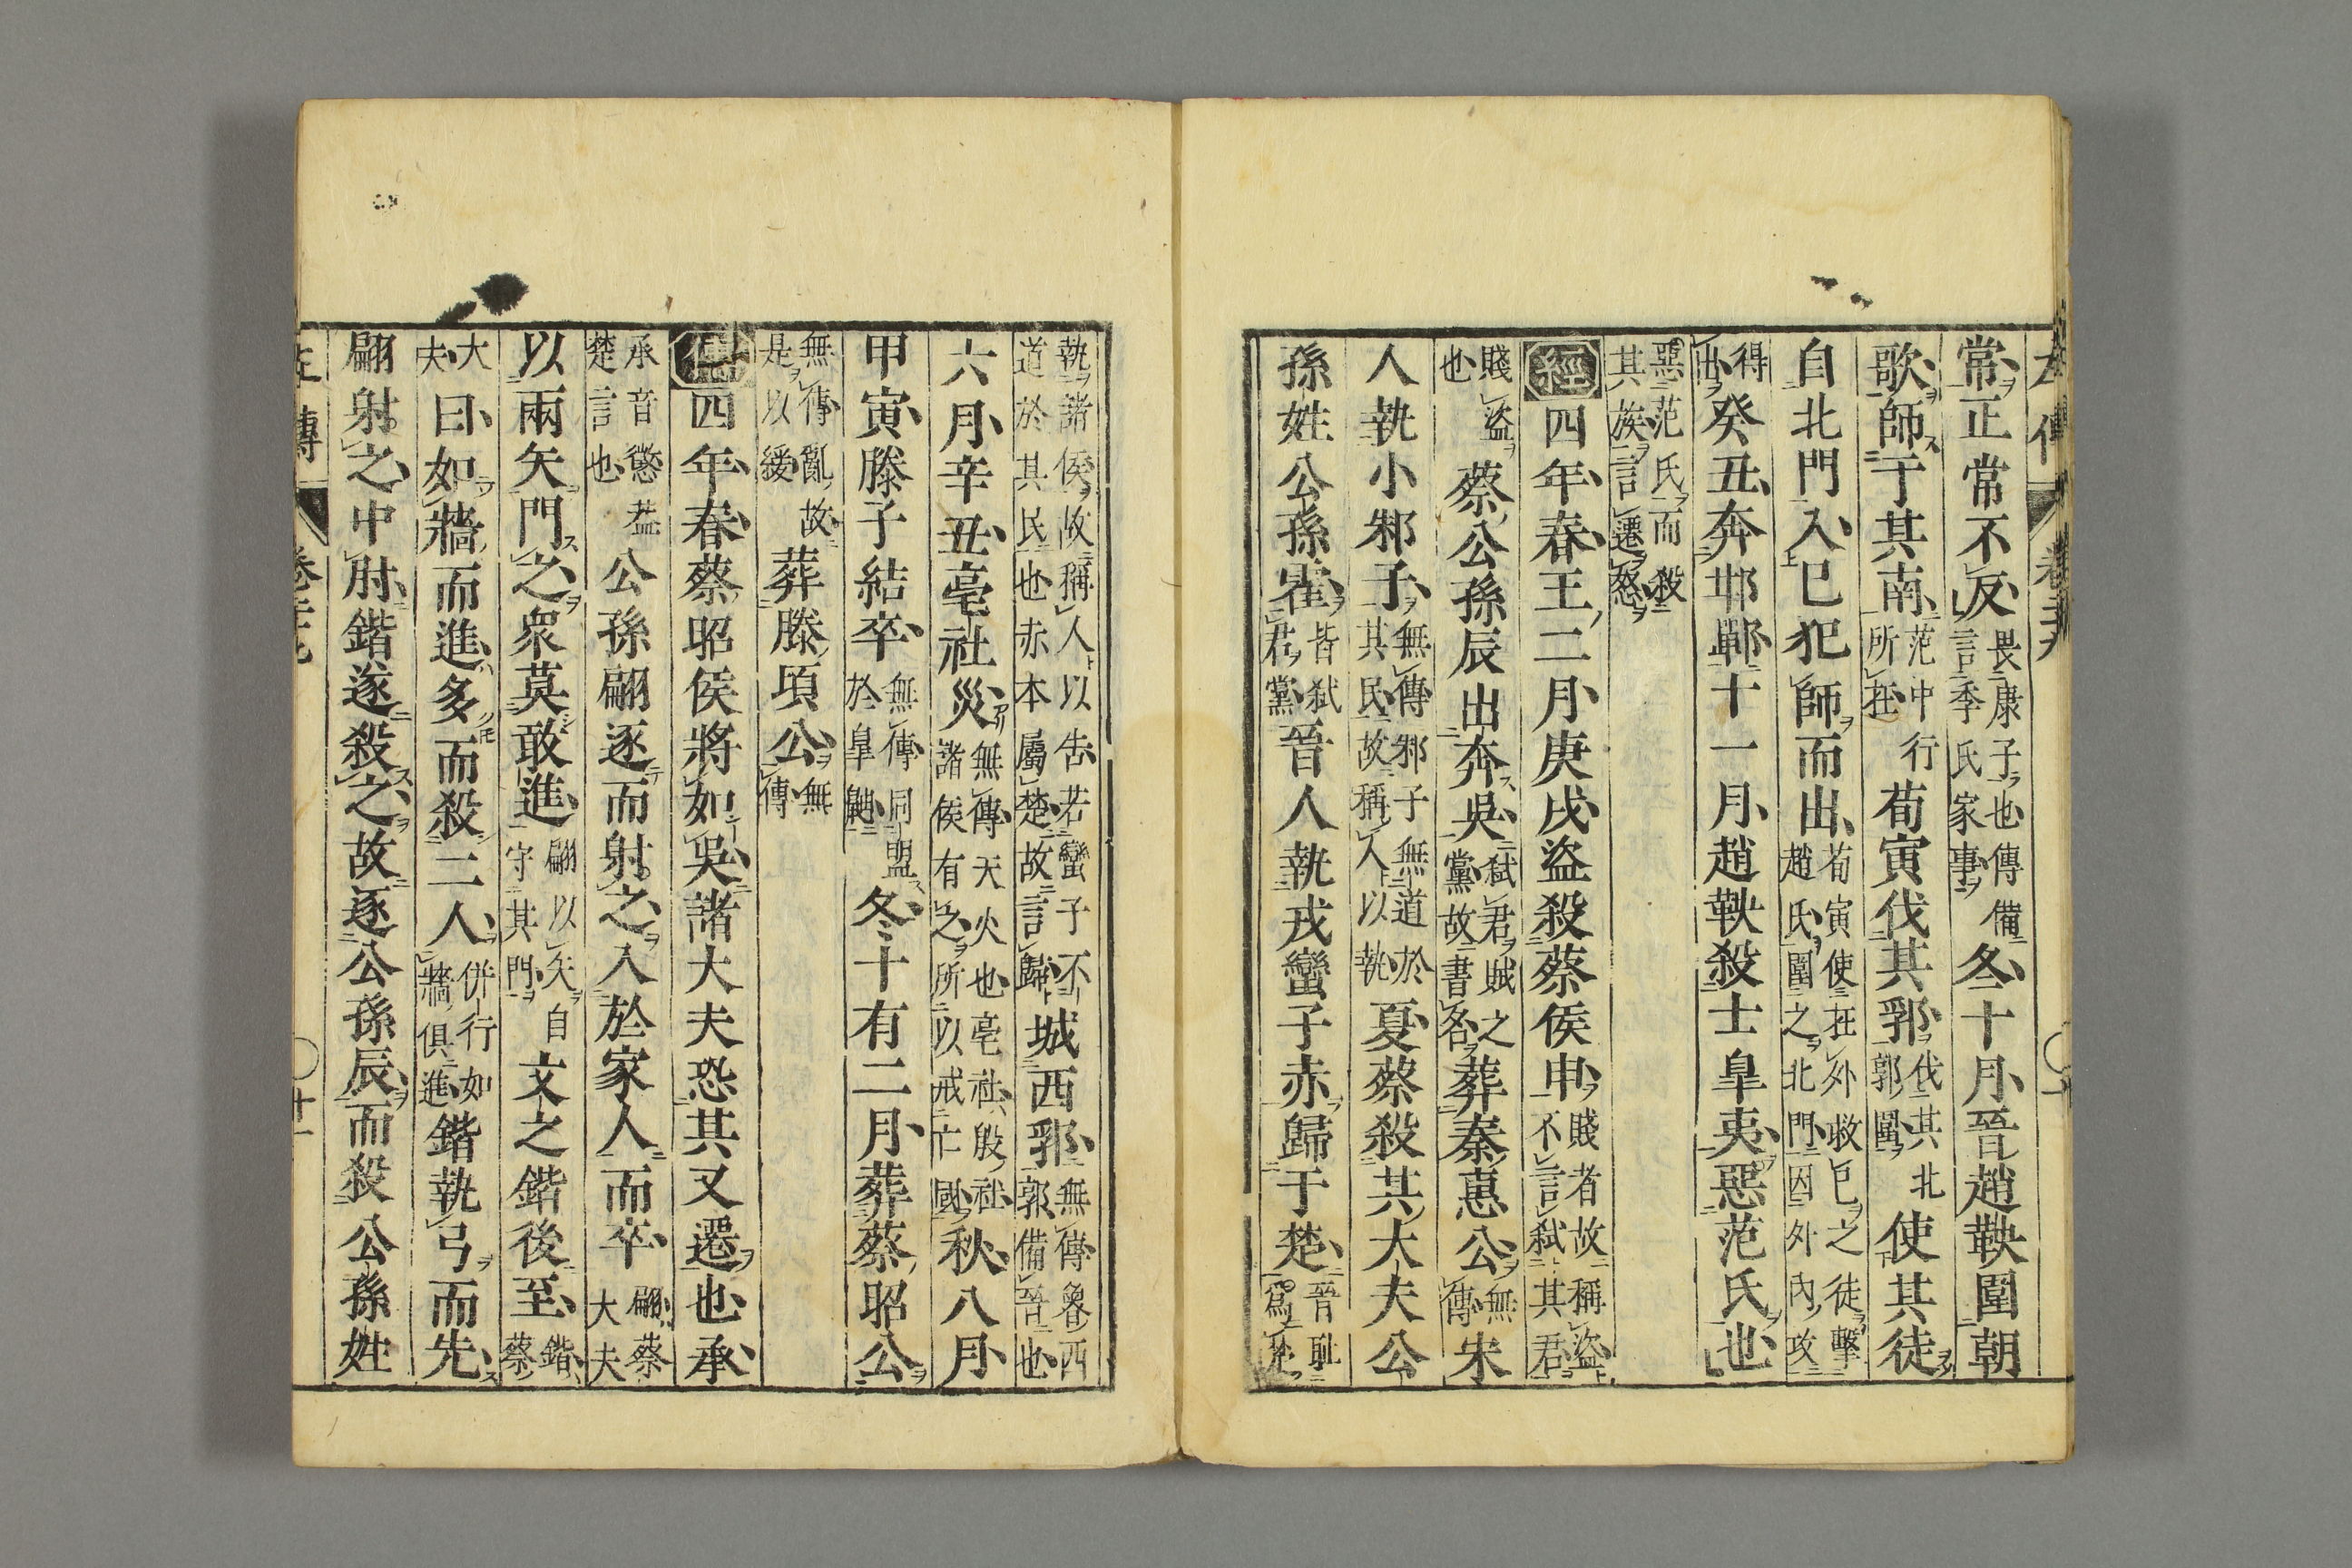 常正常不反畏康子也傳備言季氏家事冬十月晉趙鞅圍朝
歌師于其南范中行所在荀寅伐其郛伐其北郭圍使其徒
自北門入已犯師而出荀寅使在外救已之徒擊趙氏圍之北門因外內攻
得出癸丑奔邯鄲十一月趙鞅殺士皐夷惡范氏也
惡范氏而殺其族言遷怒
經四年春王二月庚戌盜殺蔡侯申賤者故稱盜不言弑其君
賤盜也蔡公孫辰出奔吳弑君賊之黨故書名葬秦惠公無傳宋
人執小邾子無傳邾子無道於其民故稱人以執夏蔡殺其大夫公
孫姓公孫霍皆弑君黨晉人執戎蠻子赤歸于楚晉耻爲楚
執諸侯故稱人以告若蠻子不道於其民也赤本屬楚故言歸城西郛無傳魯西郭備晉也
六月辛丑亳社災無傳天火也亳社殷社諸侯有之所以戒亡國秋八月
甲寅滕子結卒無傳同盟於皐鼬冬十有二月葬蔡昭公
無傳亂故是以緩葬滕頃公無傳
傳四年春蔡昭侯將如吳諸大夫恐其又遷也承
承音懲葢楚言也公孫翩逐而射之入於家人而卒翩蔡大夫
以兩矢門之衆莫敢進翩以矢自守其門文之鍇後至鍇蔡
大夫曰如牆而進多而殺二人併行如牆俱進鍇執弓而先
翩射之中肘鍇遂殺之故逐公孫辰而殺公孫姓
左傳 卷二十九 ○ 十一